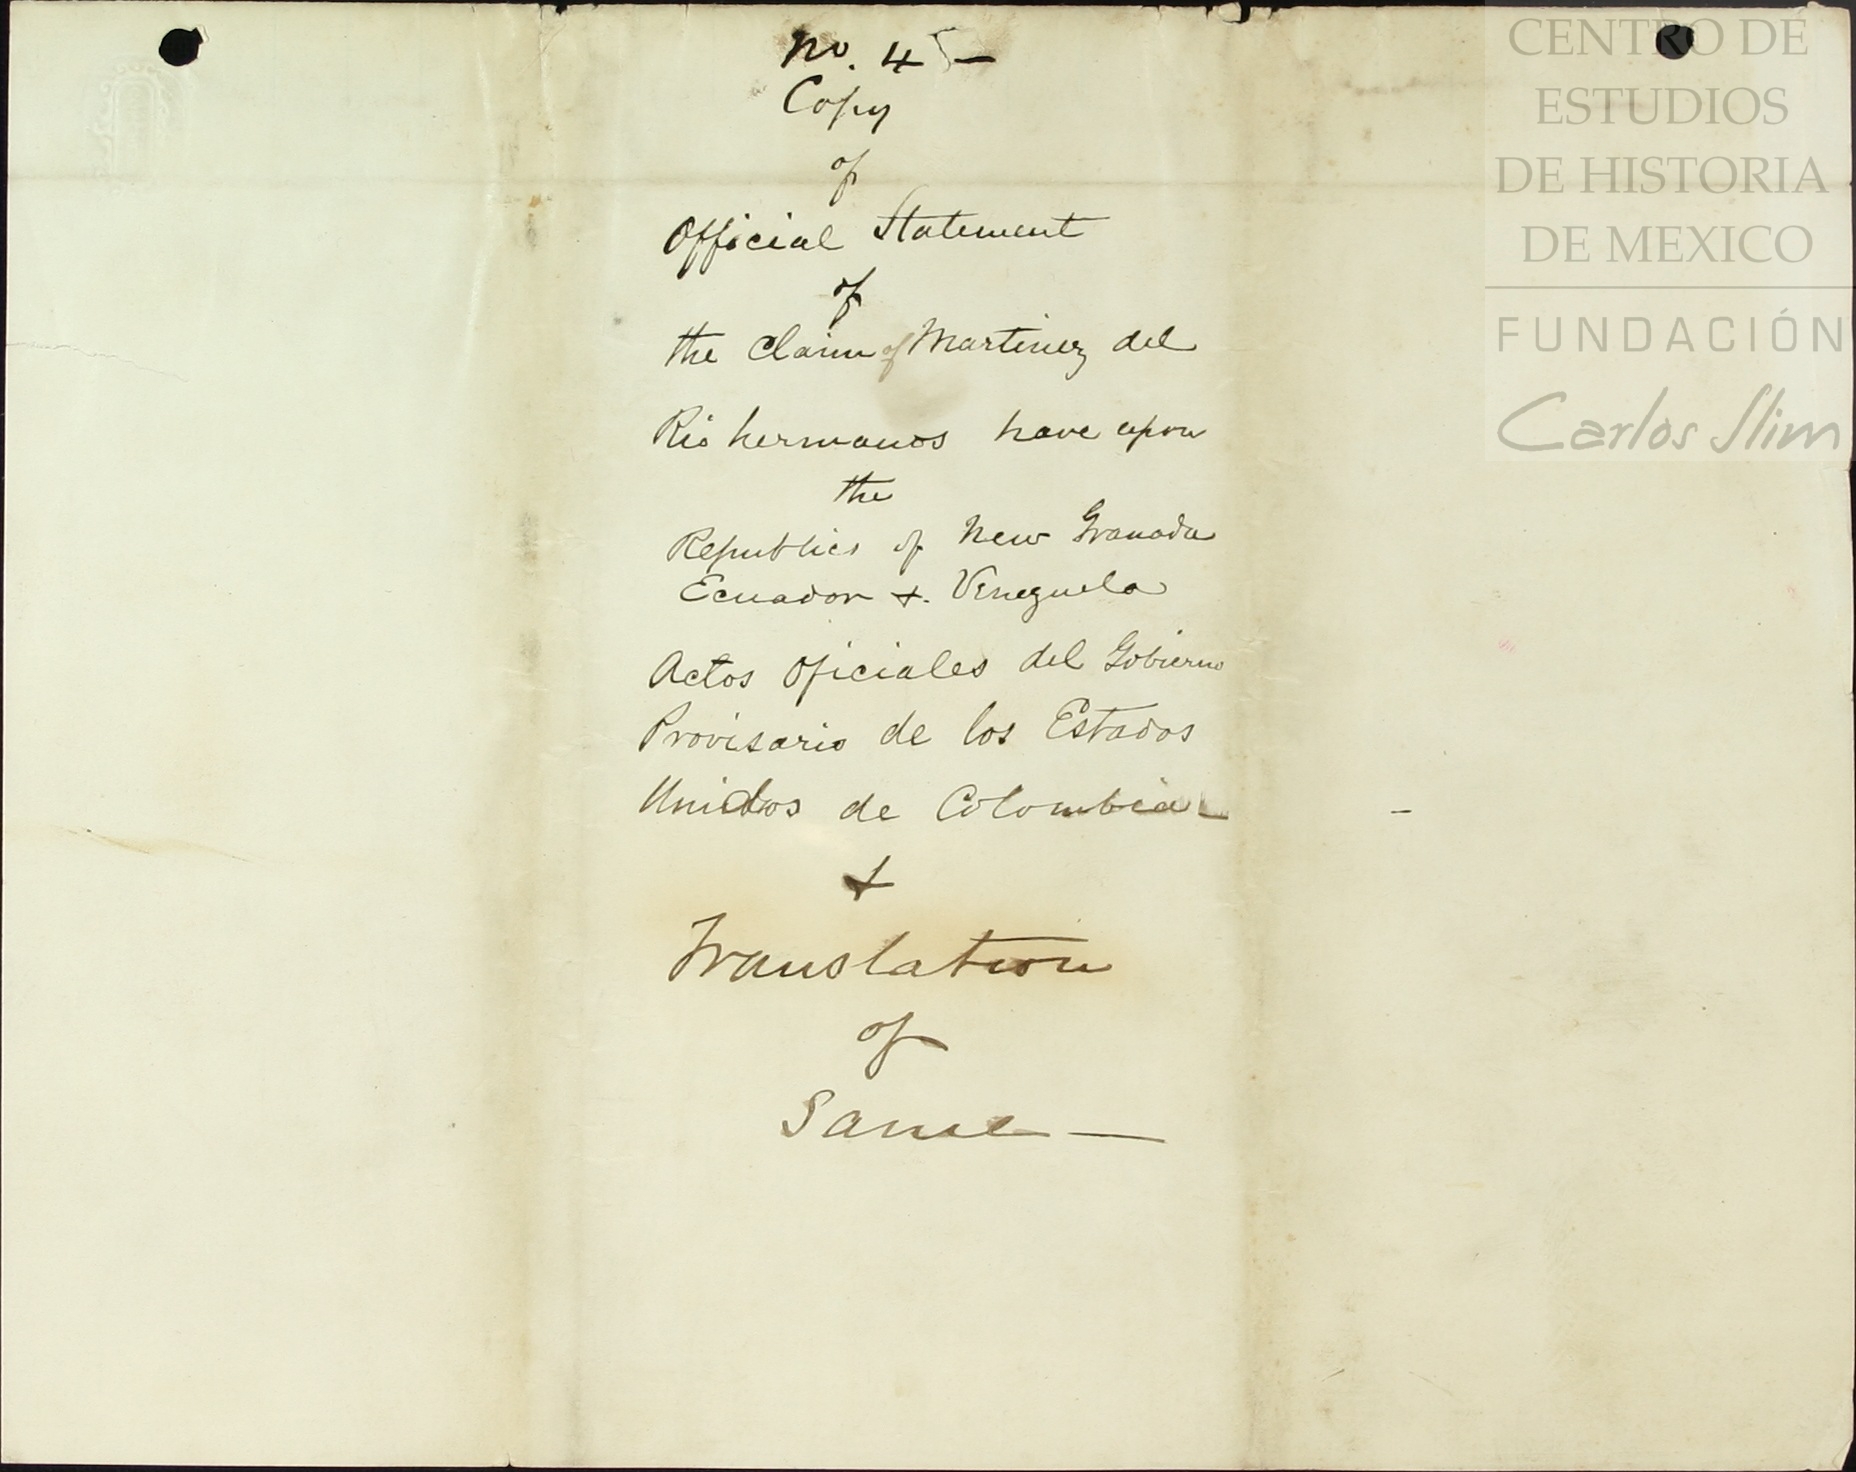 No. 4 —
Copy
of
Official Statement
of
the Claim of Martinez del
Rio hermanos have upon
the
Republics of New Granada
Ecuador &. Venezuela
Actos Oficiales del Gobierno
Provisorio de los Estados
Unidos de Colombia
&
Translation
of
Same —
CENTRO DE
ESTUDIOS
DE HISTORIA
DE MEXICO
FUNDACIÓN
Carlos Slim